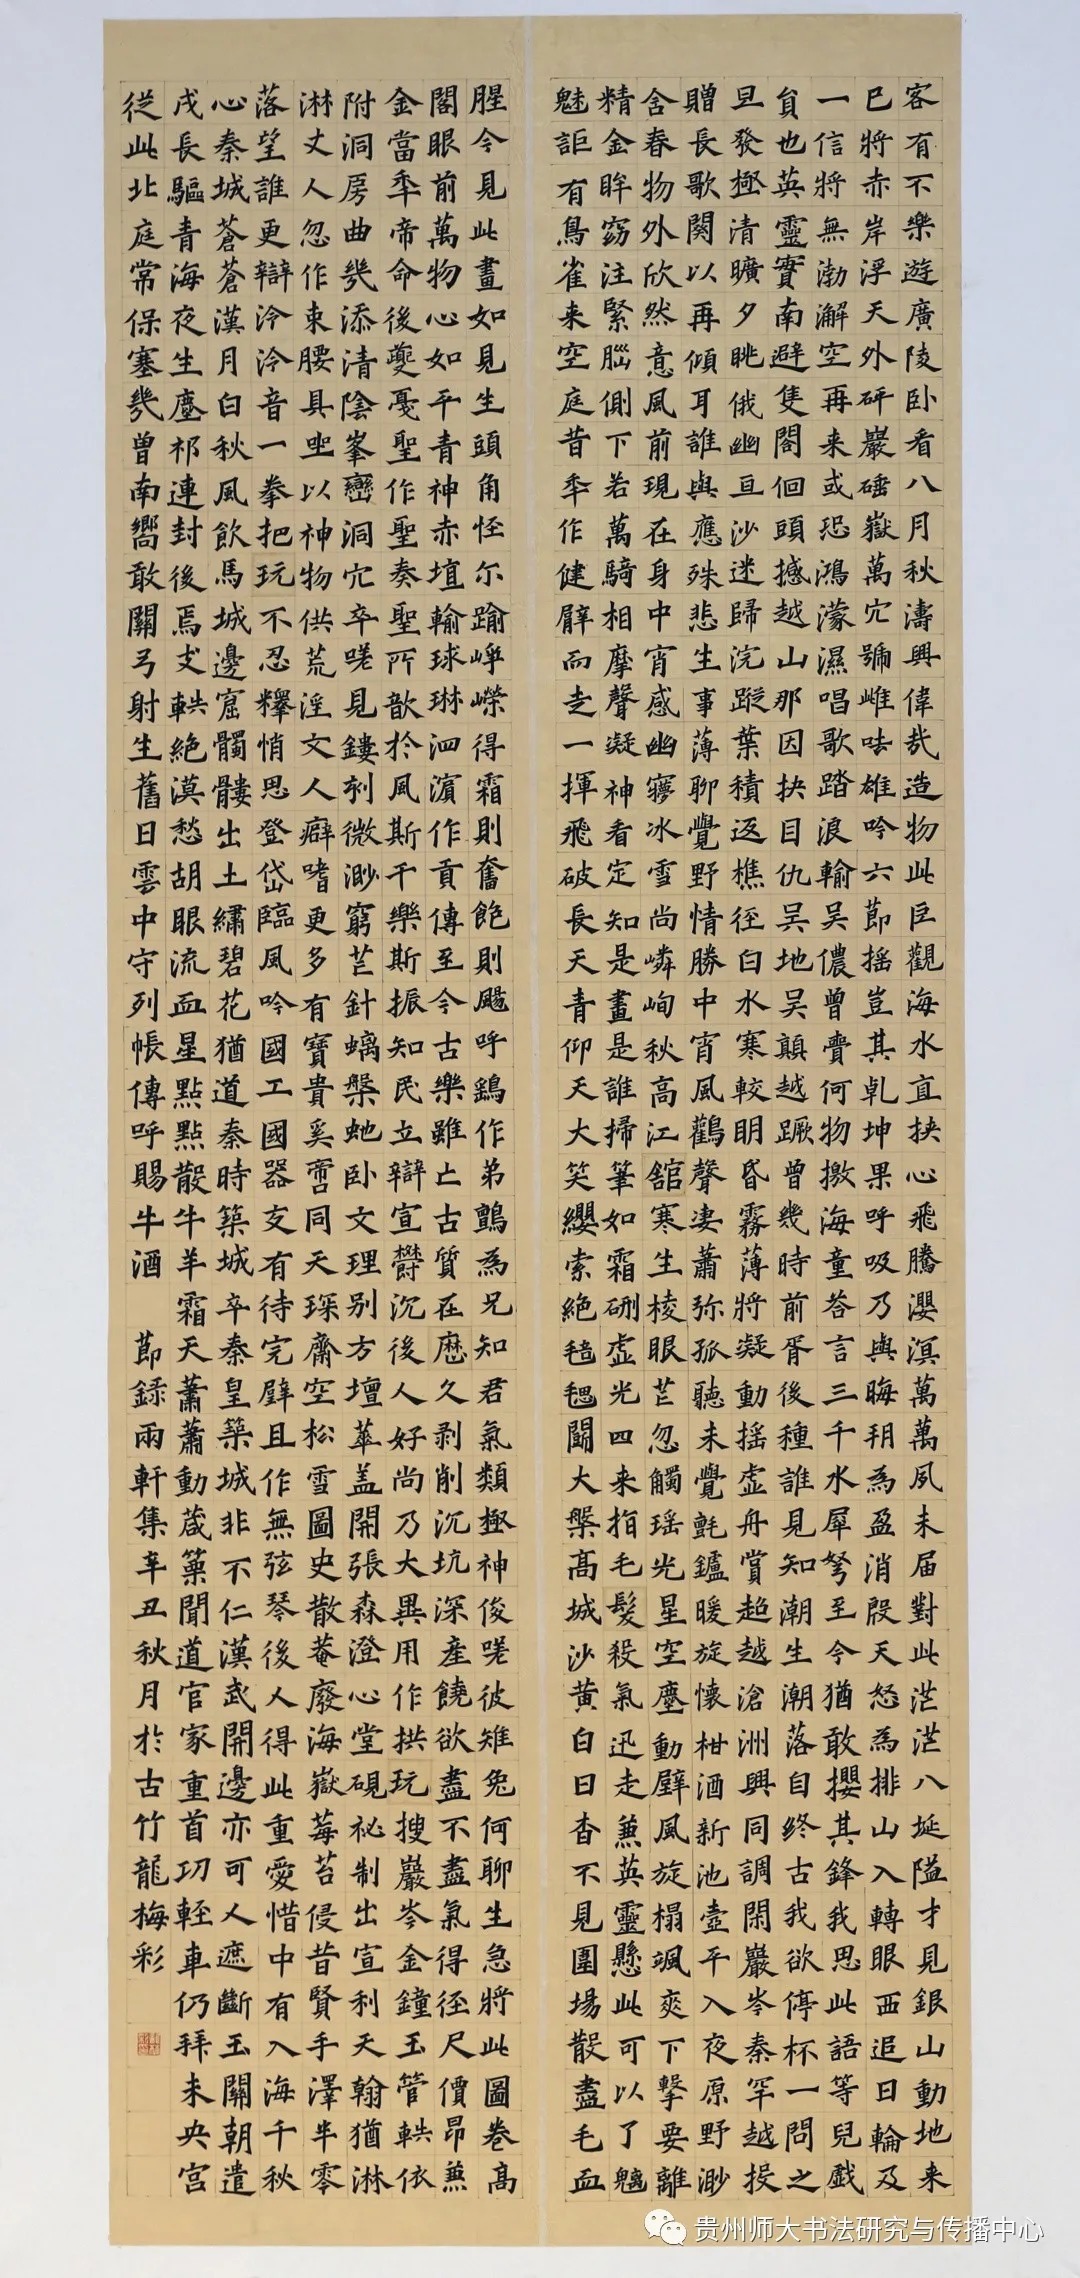 客有不樂遊廣陵卧看八月秋濤興偉哉造物此巨觀海水直抉心飛騰瀴溟萬萬夙未届對此茫茫八埏隘才見銀山動地来
已將赤岸浮天外砰巖磓嶽萬穴號雌呿雄吟六節搖豈其乹坤果呼吸乃與晦朔為盈消殷天怒為排山入轉眼西追日輪及
一信將無渤澥空再来或恐鴻濛濕唱歌踏浪輸吴儂曾賫何物撽海童荅言三千水犀弩至今猶敢攖其鋒我思此語等兒戲
負也英靈實南避隻閤佪頭撼越山那因抉目仇吴地吴顛越蹶曾幾時前胥後種誰見知潮生潮落自終古我欲停杯一問之
旦發極清曠夕眺俄幽亘沙迷歸浣蹤葉積返樵徑白水寒較明昏霧薄將凝動搖虚舟賞超越滄洲興同調閑巖岑秦罕越投
贈長歌闋以再傾耳誰與應殊悲生事薄聊覺野情勝中宵風鸛聲凄蕭弥孤聽未覺氈鑪暖旋懷柑酒新池壺平入夜原野渺
含春物外欣然意風前現在身中宵感幽夢冰雪尚嶙峋秋高江館寒生棱眼芒忽觸瑶光星空塵動壁風旋榻颯爽下擊要離
精金眸窈注緊腦側下若萬騎相摩聲凝神看定知是畫是誰掃筆如霜硎虚光四来指毛髮殺氣迅走兼英靈懸此可以了魑
魅詎有鳥雀来空庭昔年作健臂而走一揮飛破長天青仰天大笑纓索絶毰毸闘大槃高城沙黄白日杳不見圍場散盡毛血
腥今見此畫如見生頭角怪尔踰崢嶸得霜則奮飽則颺呼鷂作弟鸇為兄知君氣類極神俊嗟彼雉兔何聊生急將此圖卷高
閣眼前萬物心如平青神赤埴輸球琳泗濱作貢傳至今古樂雖亡古質在歴久剥削沉坑深産饒欲盡不盡氣得徑尺價昂兼
金當年帝命後夔憂聖作聖奏聖所歆於風斯千樂斯振知民立辯宣欝沉後人好尚乃大異用作拱玩搜巖岑金鐘玉管軼依
附洞房曲幾添清陰峯巒洞穴卒嗟見鏤刺微渺窮芒針螭槃虵卧文理别方壇華盖開張森澄心堂硯祕制出宣利天翰猶淋
淋丈人忽作束腰具坐以神物供荒淫文人癖嗜更多有寶貴奚啻同天琛齋空松雪圖史散菴廢海嶽莓苔侵昔賢手澤半零
落望誰更辯泠泠音一拳把玩不忍釋悄思登岱臨風吟國工國器支有待完璧且作無弦琴後人得此重愛惜中有入海千秋
心秦城蒼蒼漢月白秋風飲馬城邊窟髑髏出土繡碧花猶道秦時築城卒秦皇築城非不仁漢武開邊亦可人遮斷玉關朝遣
戍長驅青海夜生塵祁連封後焉支軼絶漠愁胡眼流血星點點散牛羊霜天蕭蕭動葳篥聞道官家重首功輕車仍拜未央宫
從此北庭常保塞幾曾南嚮敢關弓射生舊日雲中守列帳傳呼賜牛酒 節録雨軒集辛丑秋月於古竹龍梅彩
贵州师大书法研究与传播中心